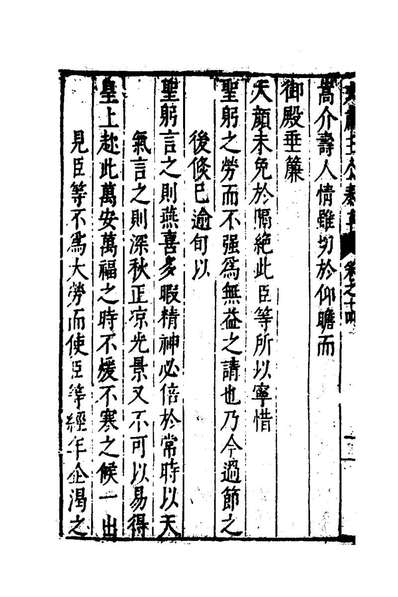 嵩介壽人情雖切於仰瞻而
御殿垂簾
天顏未免於隔絶此臣等所以寧惜
聖躬之勞而不强爲無益之請也乃今過節之
後倐已逾旬以
聖躬言之則燕喜多暇精神必倍於常時以天
氣言之則深秋正凉光景又不可以易得
皇上趂此萬安萬福之時不煖不寒之候一出
見臣等不爲大勞而使臣等經年企渴之